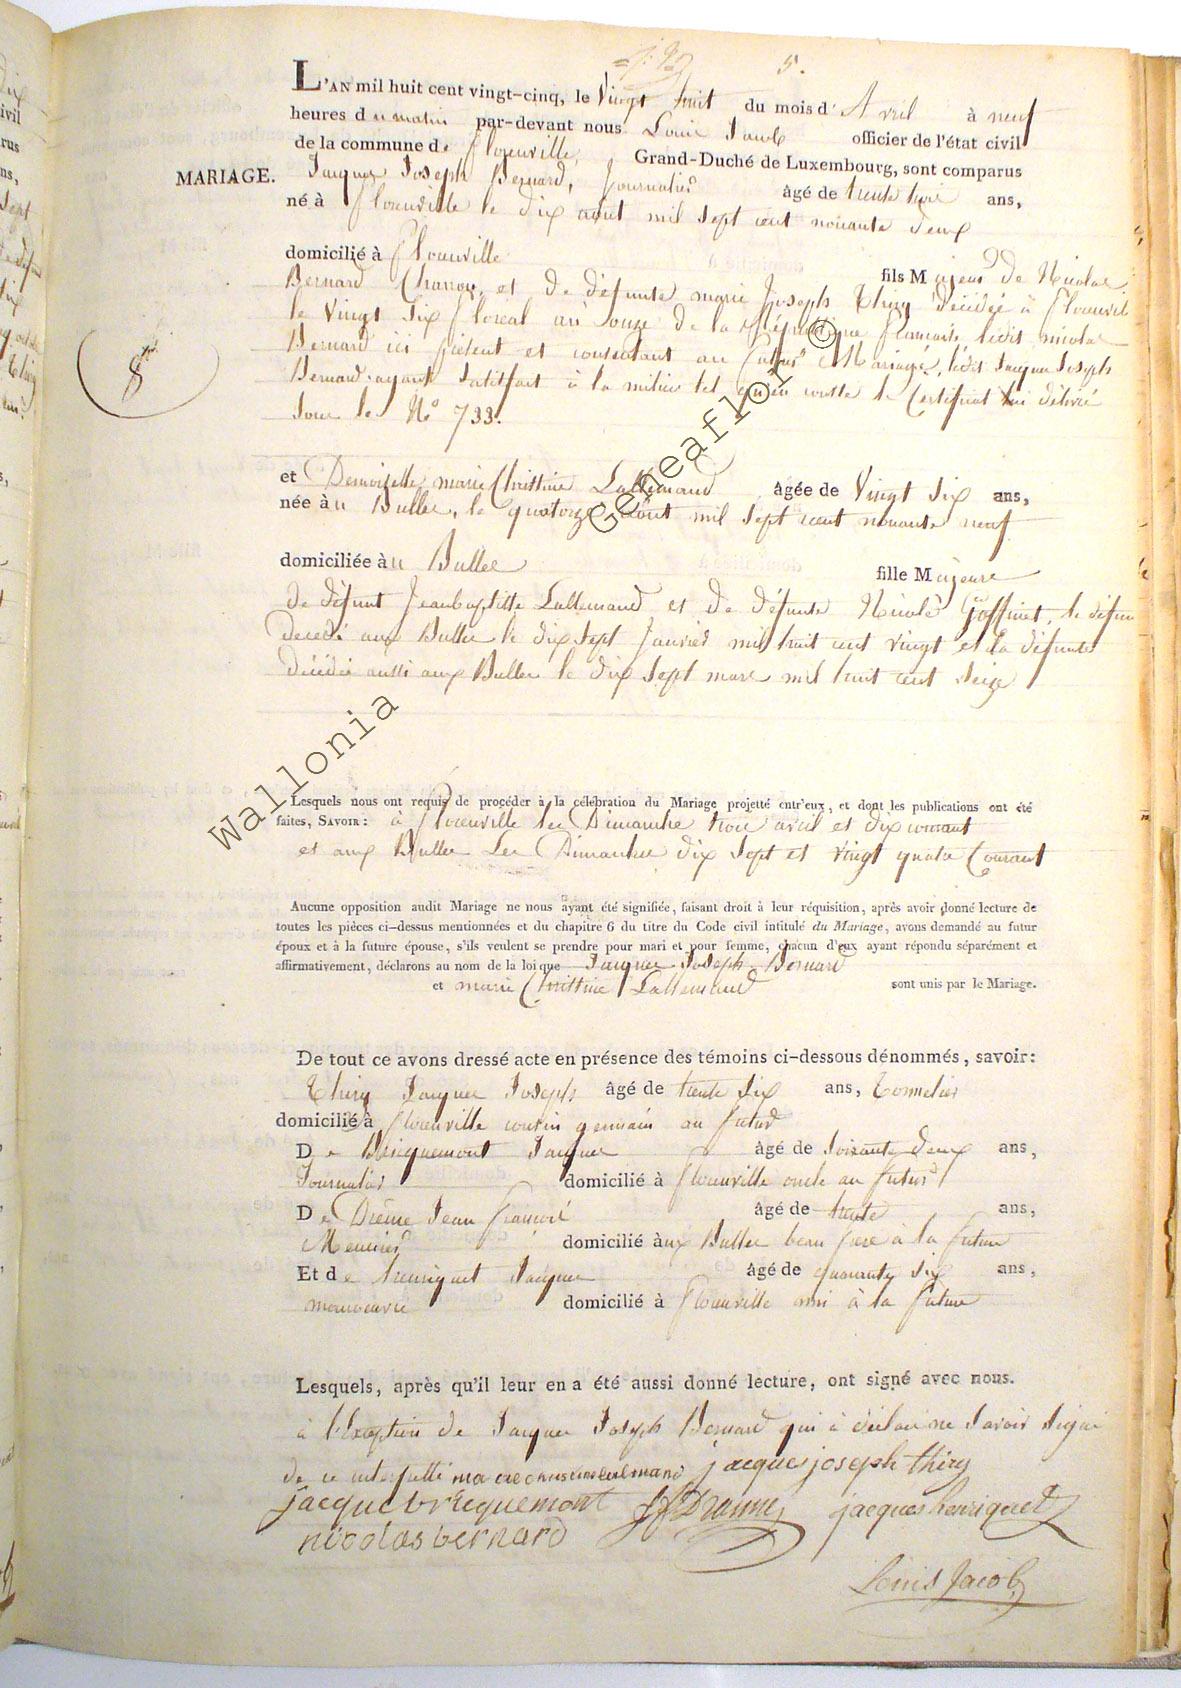 5.
L'AN mil huit cent vingt-cinq, le Vingt huit du mois d'Avril à neuf
heures du matin par-devant nous Louis Jacob officier de l'état civil
de la commune de florenville, Grand-Duché de Luxembourg, sont comparus
MARIAGE.
Jacques Joseph Bernard, Journalier âgé de trente trois ans,
né à florenville le dix aout mil sept cent nonante deux
domicilié à florenville fils Majeur de Nicolas
Bernard Charron, et de défunte marie Joseph Thiry décédée à florenvil
le Vingt Six floreal an onze de la République francaise, ledit nicolas
Bernard ici présent et consentant au futur Mariage, ledit Jacques Joseph
8
Bernard ayant satisfait à la milice tel qu'en conste le Certificat lui délivré
sous le No 733.
et Demoiselle marie Christine Lallemand âgée de Vingt Six ans,
née au Bulles, le quatorze aout mil sept cent nonante neuf
domiciliée au Bulles fille Majeure
de défunt Jeanbaptiste Lallemand et de défunte Nicole Goffinet, le défun
Decedé aux Bulles le dix Sept Janvier mil huit cent vingt et la défunte
décédée aussi aux Bulles le dix Sept mars mil huit cent Seize
Lesquels nous ont requis de procéder à la célébration du Mariage projetté entr'eux, et dont les publications ont été
faites, SAVOIR : à florenville les Dimanche trois avril et dix courant
et aux Bulles Les Dimanches dix Sept et vingt quatre Courant
Aucune opposition audit Mariage ne nous ayant été signifiée, faisant droit à leur réquisition, après avoir donné lecture de
toutes les pièces ci-dessus mentionnées et du chapitre 6 du titre du Code civil intitulé du Mariage, avons demandé au futur
époux et à la future épouse, s'ils veulent se prendre pour mari et pour femme, chacun d'eux ayant répondu séparément et
affirmativement, déclarons au nom de la loi que Jacques Joseph Bernard
et marie Christine Lallemand sont unis par le Mariage.
De tout ce avons dressé acte en présence des témoins ci-dessous dénommés, savoir:
Thiry Jacques Joseph âgé de trente Six ans, Tonnelier
domicilié à florenville cousin germain au futur
De Bricquemont Jacques âgé de Soixante deux ans,
Journalier domicilié à florenville oncle au futur
De Drème Jean françois âgé de trente ans,
Menuisier domicilié aux Bulles beau frere à la future
Et de henriquet Jacques âgé de quarante Six ans,
manoeuvre domicilié à florenville ami à la future
Lesquels, après qu'il leur en a été aussi donné lecture, ont signé avec nous.
à l'Exception de Jacques Joseph Bernard qui à déclaré ne Savoir Signer
de ce interpellé jacques joseph thiry
jacque bricquemont jacques henriquet
nicolas bernard
Louis Jacob
Wallonia Geneaflor ©